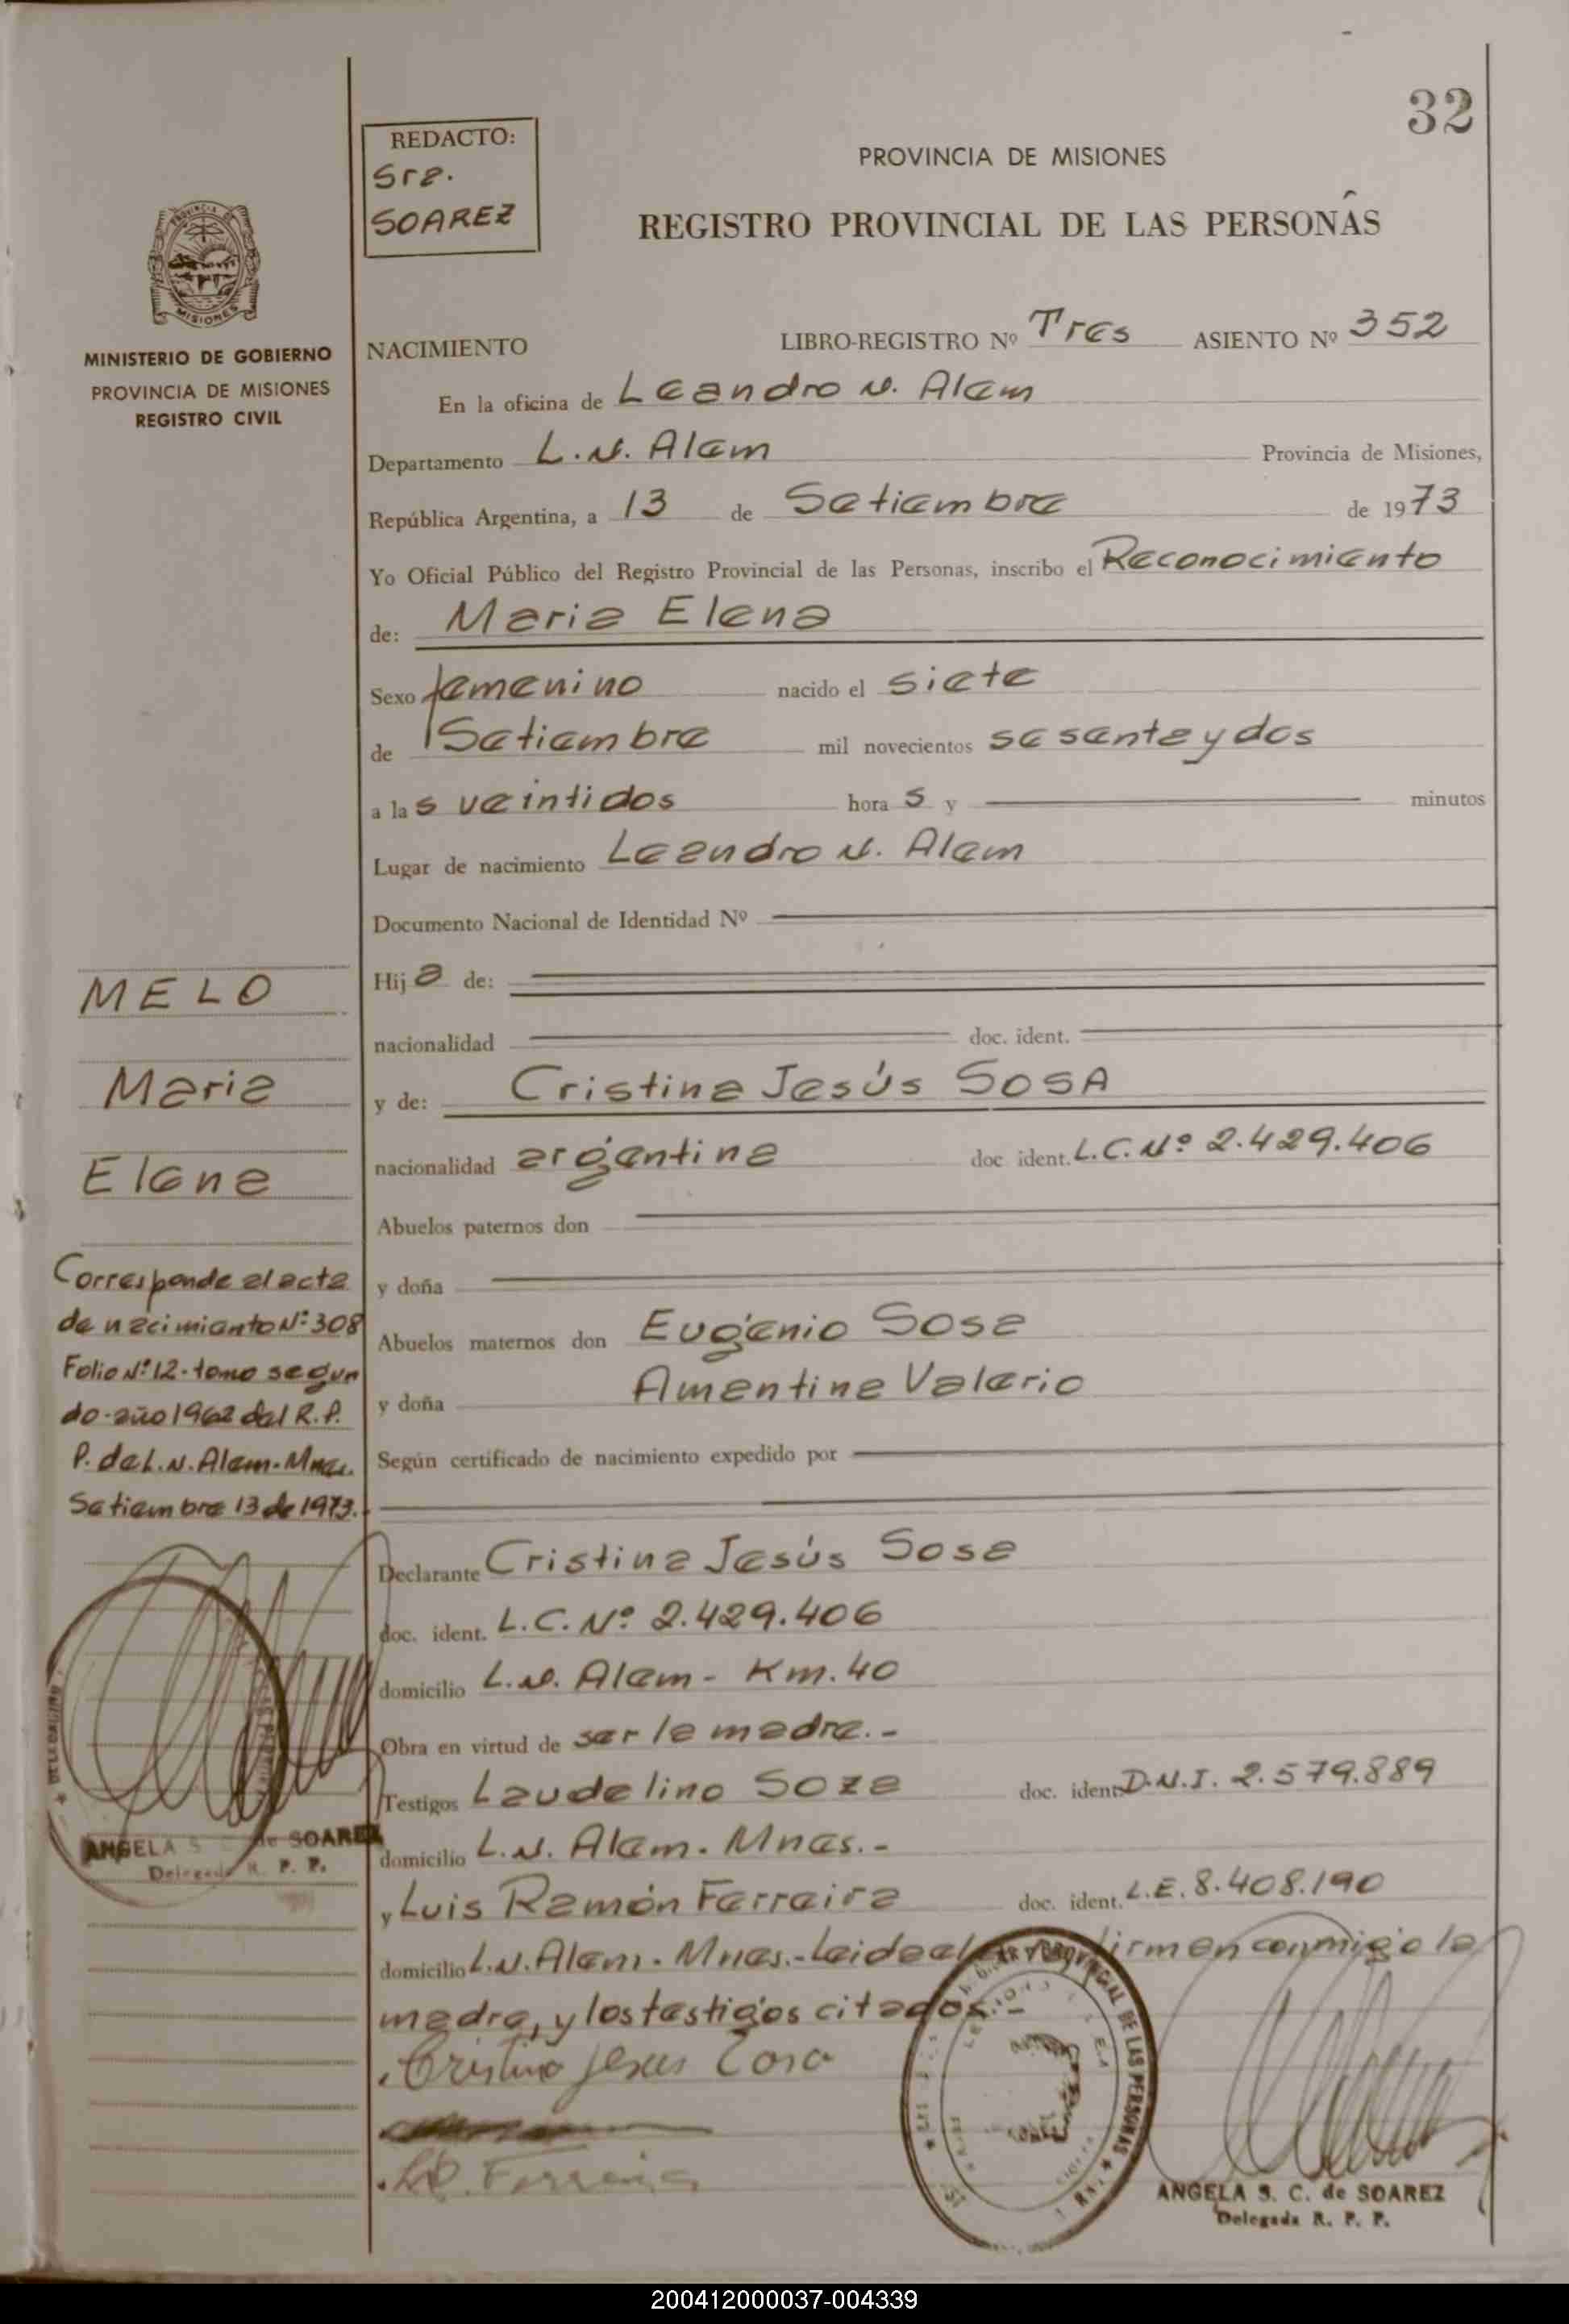 32
REDACTO:
Sra.
SOAREZ
PROVINCIA DE MISIONES
REGISTRO PROVINCIAL DE LAS PERSONAS
MINISTERIO DE GOBIERNO
PROVINCIA DE MISIONES
REGISTRO CIVIL
NACIMIENTO LIBRO-REGISTRO Nº Tres ASIENTO Nº 352
En la oficina de Leandro N. Alem
Departamento L.N. Alem Provincia de Misiones,
República Argentina, a 13 de Setiembre de 1973
Yo Oficial Público del Registro Provincial de las Personas, inscribo el Reconocimiento
de: Maria Elena
Sexo femenino nacido el siete
de Setiembre mil novecientos sesenta y dos
a las veintidos horas y minutos
Lugar de nacimiento Leandro N. Alem
Documento Nacional de Identidad Nº
Hija de:
nacionalidad doc. ident.
y de: Cristina Jesús SOSA
nacionalidad argentina doc ident. L.C. Nº 2.429.406
Abuelos paternos don
y doña
Abuelos maternos don Eugenio Sosa
y doña Amentina Valerio
Según certificado de nacimiento expedido por
Declarante Cristina Jesús Sosa
doc. ident. L.C. Nº 2.429.406
domicilio L.N. Alem - Km. 40
Obra en virtud de ser la madre.-
Testigos Laudelino Soza doc. ident. D.N.I. 2.579.889
domicilio L.N. Alem. Mnes.-
y Luis Ramón Ferreira doc. ident. L.E. 8.408.190
domicilio L.N. Alem. Mnes.- Leida el firman conmigo la
madre, y los testigos citados.-
Cristina Jesus Sosa
Ferreira
MELO
Maria
Elena
Corresponde al acta
de nacimiento Nº 308
Folio Nº 12- tomo segun
do- año 1962 del R.P.
P. de L.N. Alem- Mnes.
Setiembre 13 de 1973.
ANGELA S de SOAREZ
Delegada R. P. P.
PROVINCIAL DE LAS PERSONAS
ANGELA S. C. de SOAREZ
Delegada R. P. P.
200412000037-004339